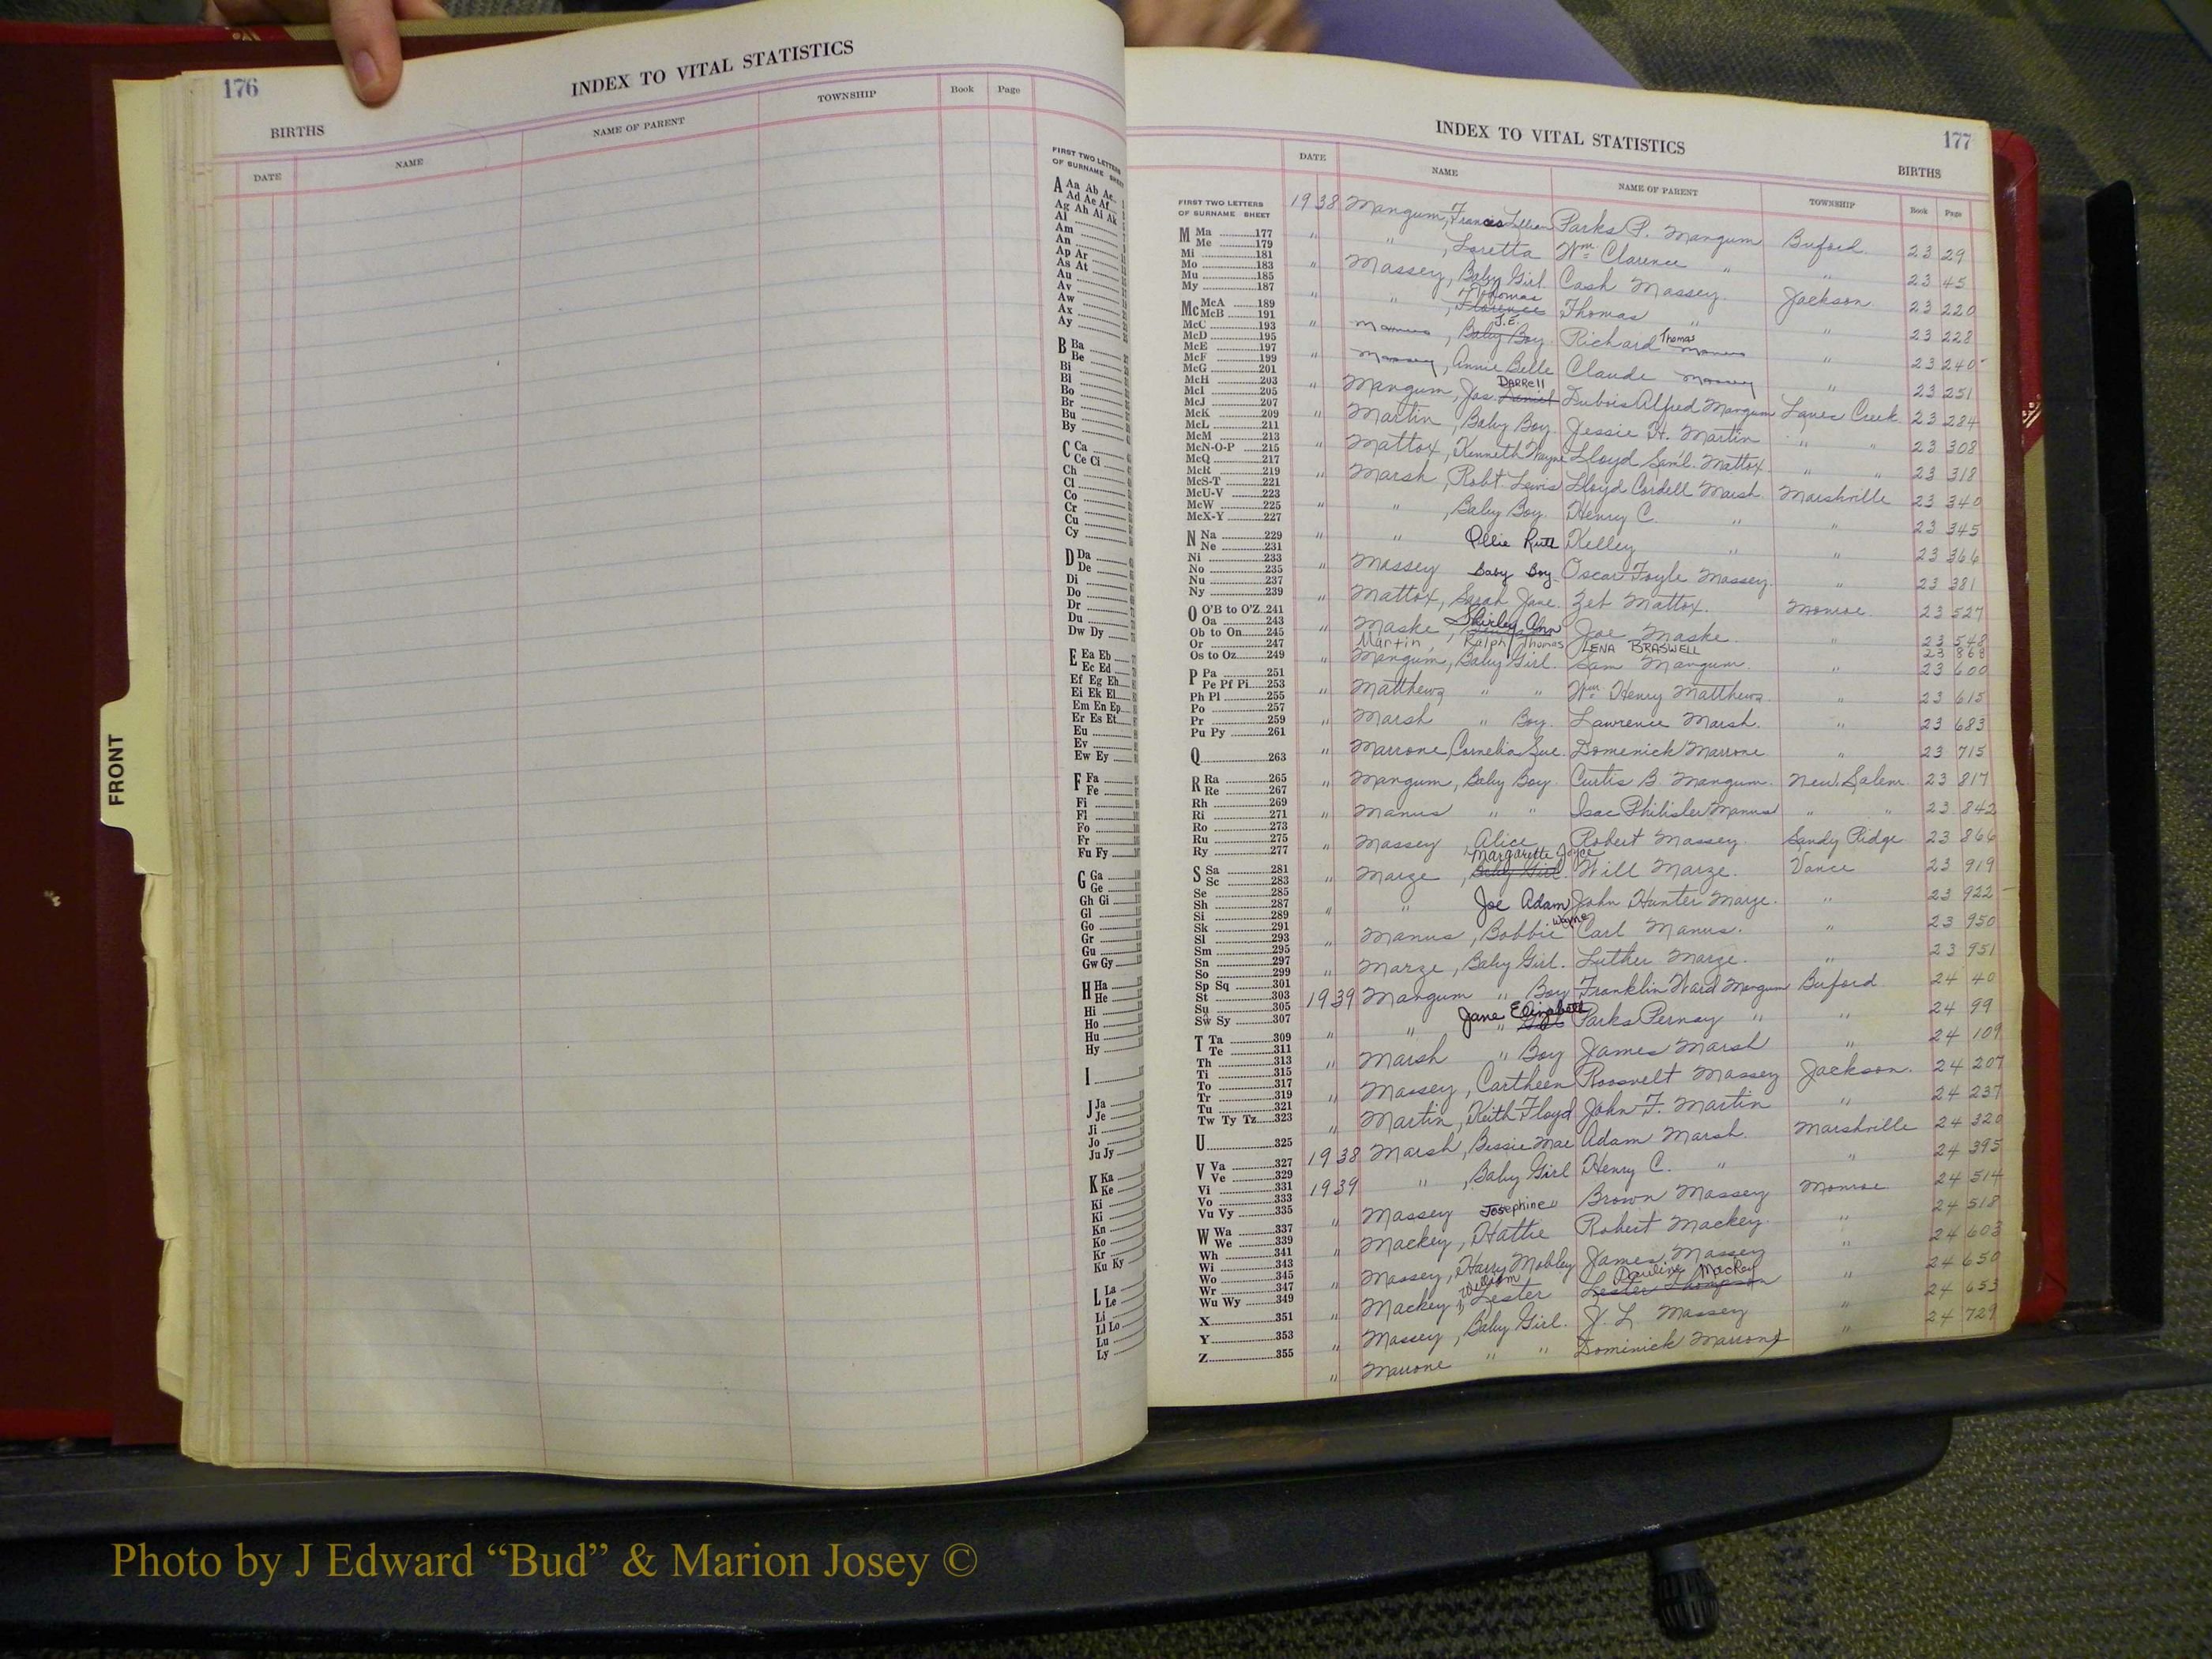 176
INDEX TO VITAL STATISTICS
BIRTHS
DATE NAME NAME OF PARENT TOWNSHIP Book Page
FIRST TWO LETTERS
OF SURNAME SHEET
A Aa Ab Ac
Ad Ae Af
Ag Ah Ai Ak
Al
Am
An
Ap Ar
As At
Au
Av
Aw
Ax
Ay
B Ba
Be
Bi
Bl
Bo
Br
Bu
By
C Ca
Ce Ci
Ch
Cl
Co
Cr
Cu
Cy
D Da
De
Di
Do
Dr
Du
Dw Dy
E Ea Eb
Ec Ed
Ef Eg Eh
Ei Ek El
Em En Ep
Er Es Et
Eu
Ev
Ew Ey
F Fa
Fe
Fi
Fl
Fo
Fr
Fu Fy
G Ga
Ge
Gh Gi
Gl
Go
Gr
Gu
Gw Gy
H Ha
He
Hi
Ho
Hu
Hy
I
J Ja
Je
Ji
Jo
Ju Jy
K Ka
Ke
Ki
Ki
Kn
Ko
Kr
Ku Ky
L La
Le
Li
Ll Lo
Lu
Ly
FRONT
INDEX TO VITAL STATISTICS
177
BIRTHS
DATE NAME NAME OF PARENT TOWNSHIP Book Page
FIRST TWO LETTERS
OF SURNAME SHEET
M Ma 177
Me 179
Mi 181
Mo 183
Mu 185
My 187
Mc McA 189
McB 191
McC 193
McD 195
McE 197
McF 199
McG 201
McH 203
McI 205
McJ 207
McK 209
McL 211
McM 213
McN-O-P 215
McQ 217
McR 219
McS-T 221
McU-V 223
McW 225
McX-Y 227
N Na 229
Ne 231
Ni 233
No 235
Nu 237
Ny 239
O O'B to O'Z 241
Oa 243
Ob to On 245
Or 247
Os to Oz 249
P Pa 251
Pe Pf Pi 253
Ph Pl 255
Po 257
Pr 259
Pu Py 261
Q 263
R Ra 265
Re 267
Rh 269
Ri 271
Ro 273
Ru 275
Ry 277
S Sa 281
Sc 283
Se 285
Sh 287
Si 289
Sk 291
Sl 293
Sm 295
Sn 297
So 299
Sp Sq 301
St 303
Su 305
Sw Sy 307
T Ta 309
Te 311
Th 313
Ti 315
To 317
Tr 319
Tu 321
Tw Ty Tz 323
U 325
V Va 327
Ve 329
Vi 331
Vo 333
Vu Vy 335
W Wa 337
We 339
Wh 341
Wi 343
Wo 345
Wr 347
Wu Wy 349
X 351
Y 353
Z 355
1938 Mangum, Frances Lillian Parks P. Mangum Buford 23 29
" " , Loretta Wm. Clarence " " 23 45
" Massey, Baby Girl. Cash Massey. Jackson 23 220
" " , Thomas Thomas " " 23 228
" Manus, Baby Boy. J.E. Richard Thomas Manus " 23 240
" Massey, Annie Belle Claude Massey " 23 251
" Mangum, Jas. Daniel DARRELL Dubois Alfred Mangum Lanes Creek. 23 284
" Martin, Baby Boy. Jessie H. Martin " " 23 308
" Mattox, Kenneth Wayne Lloyd Sam'l. Mattox. " " 23 318
" Marsh, Robt. Lewis Lloyd Cordell Marsh. Marshville 23 340
" " , Baby Boy. Henry C. " " 23 345
" " Ollie Ruth Kelley " " 23 366
" Massey Baby Boy Oscar Foyle Massey. " 23 381
" Mattox, Sarah Jane. Zeb Mattox. Monroe. 23 527
" Maske, Shirley Ann Joe Maske. " 23 548
Martin, Ralph Thomas LENA BRASWELL 23 868
" Mangum, Baby Girl. Sam Mangum. " 23 600
" Matthews " " Wm. Henry Matthews. " 23 615
" Marsh " Boy. Lawrence Marsh. " 23 683
" Marrone, Cornelia Sue. Domenick Marrone " 23 715
" Mangum, Baby Boy. Curtis B. Mangum. New Salem. 23 817
" Manus " " Isac Manus " " 23 842
" Massey, Alice Robert Massey. Sandy Ridge. 23 866
" Marze, Baby Girl. Margarette Joyce Will Marze. Vance 23 919
" " Joe Adam John Hunter Marze. " 23 922
" Manus, Bobbie Wayne Carl Manus. " 23 950
" Marze, Baby Girl. Luther Marze. " 23 951
1939 Mangum " Boy Franklin Ward Mangum Buford 24 40
" " " Girl Jane Elizabeth Parks Pernay " " 24 99
" Marsh " Boy James Marsh " 24 109
" Massey, Cartheen Roosvelt Massey Jackson. 24 207
" Martin, Keith Floyd John F. Martin " 24 237
1938 Marsh, Bessie Mae Adam Marsh. Marshville 24 320
1939 " , Baby Girl Henry C. " " 24 395
" Massey Josephine Brown Massey Monroe. 24 514
" Mackey, Hattie Robert Mackey. " 24 518
" Massey, Harry Mobley James Massey " 24 603
" Mackey, William Lester Lester Thompson Pauline Mackey " 24 650
" Massey, Baby Girl. J. L. Massey " 24 653
" Marrone " " Dominick Marrone " 24 729
Photo by J Edward “Bud” & Marion Josey ©